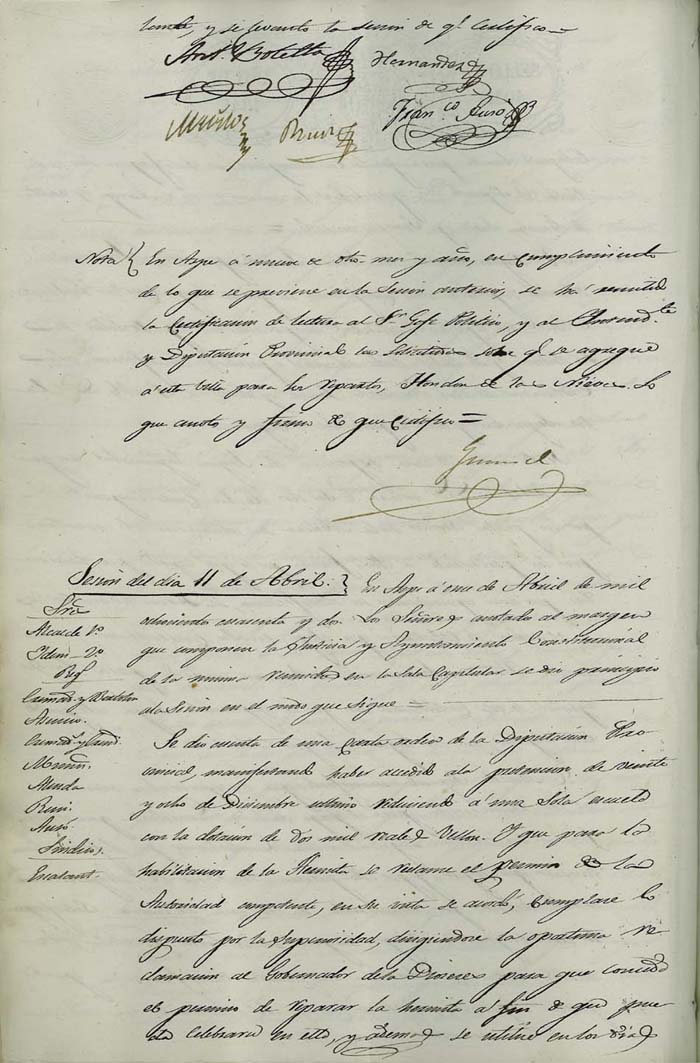 y se levantó la sesion de q.e Certifico =
Ant.o Botella
Hernandez
Muñoz
Fran.co Auso
Nota { En Aspe á nueve de dho. mes y año, en cumplimiento
de lo que se previene en la Sesion anterior, se há remitido
la Certificacion de lectura al S.or Gefe Politico, y al Yntend.te
y Diputación Provincial las solicitudes sobre q.e se agregue
á esta Villa para los repartos, Hondon de las Nieves. Lo
que anoto y firmo de que Certifico =
Sesión del dia 11 de Abril. } En Aspe á once de Abril de mil
ochocientos cuarenta y dos. Los Señores anotados al margen
que componen la Justicia y Ayuntamiento Constitucional
de la misma reunidos en la Sala Capitular se dio principio
ala Sesion en el modo que sigue =
S.res
Alcalde 1.o
Idem 2.o
Reg.s
Asencio.
Almodo
Auso.
Sindico.
Se dio cuenta de una Carta orden de la Diputación Pro
vincial manifestando haber accedido ala pretension de veinte
y ocho de Diciembre ultimo reduciendo á una sola escuela
con la dotacion de dos mil reales Vellon. Y que para la
habilitacion de la Hermita se reclame el permiso de la
Autoridad competente, en su vista se acordó, cumplase lo
dispuesto por la Superioridad, dirigiendose la oportuna re
clamación al Gobernador de la Diocesis para que conceda
el permiso de reparar la hermita á fin de que pue
da celebrarse en ella, y ademas se utilice en los dias